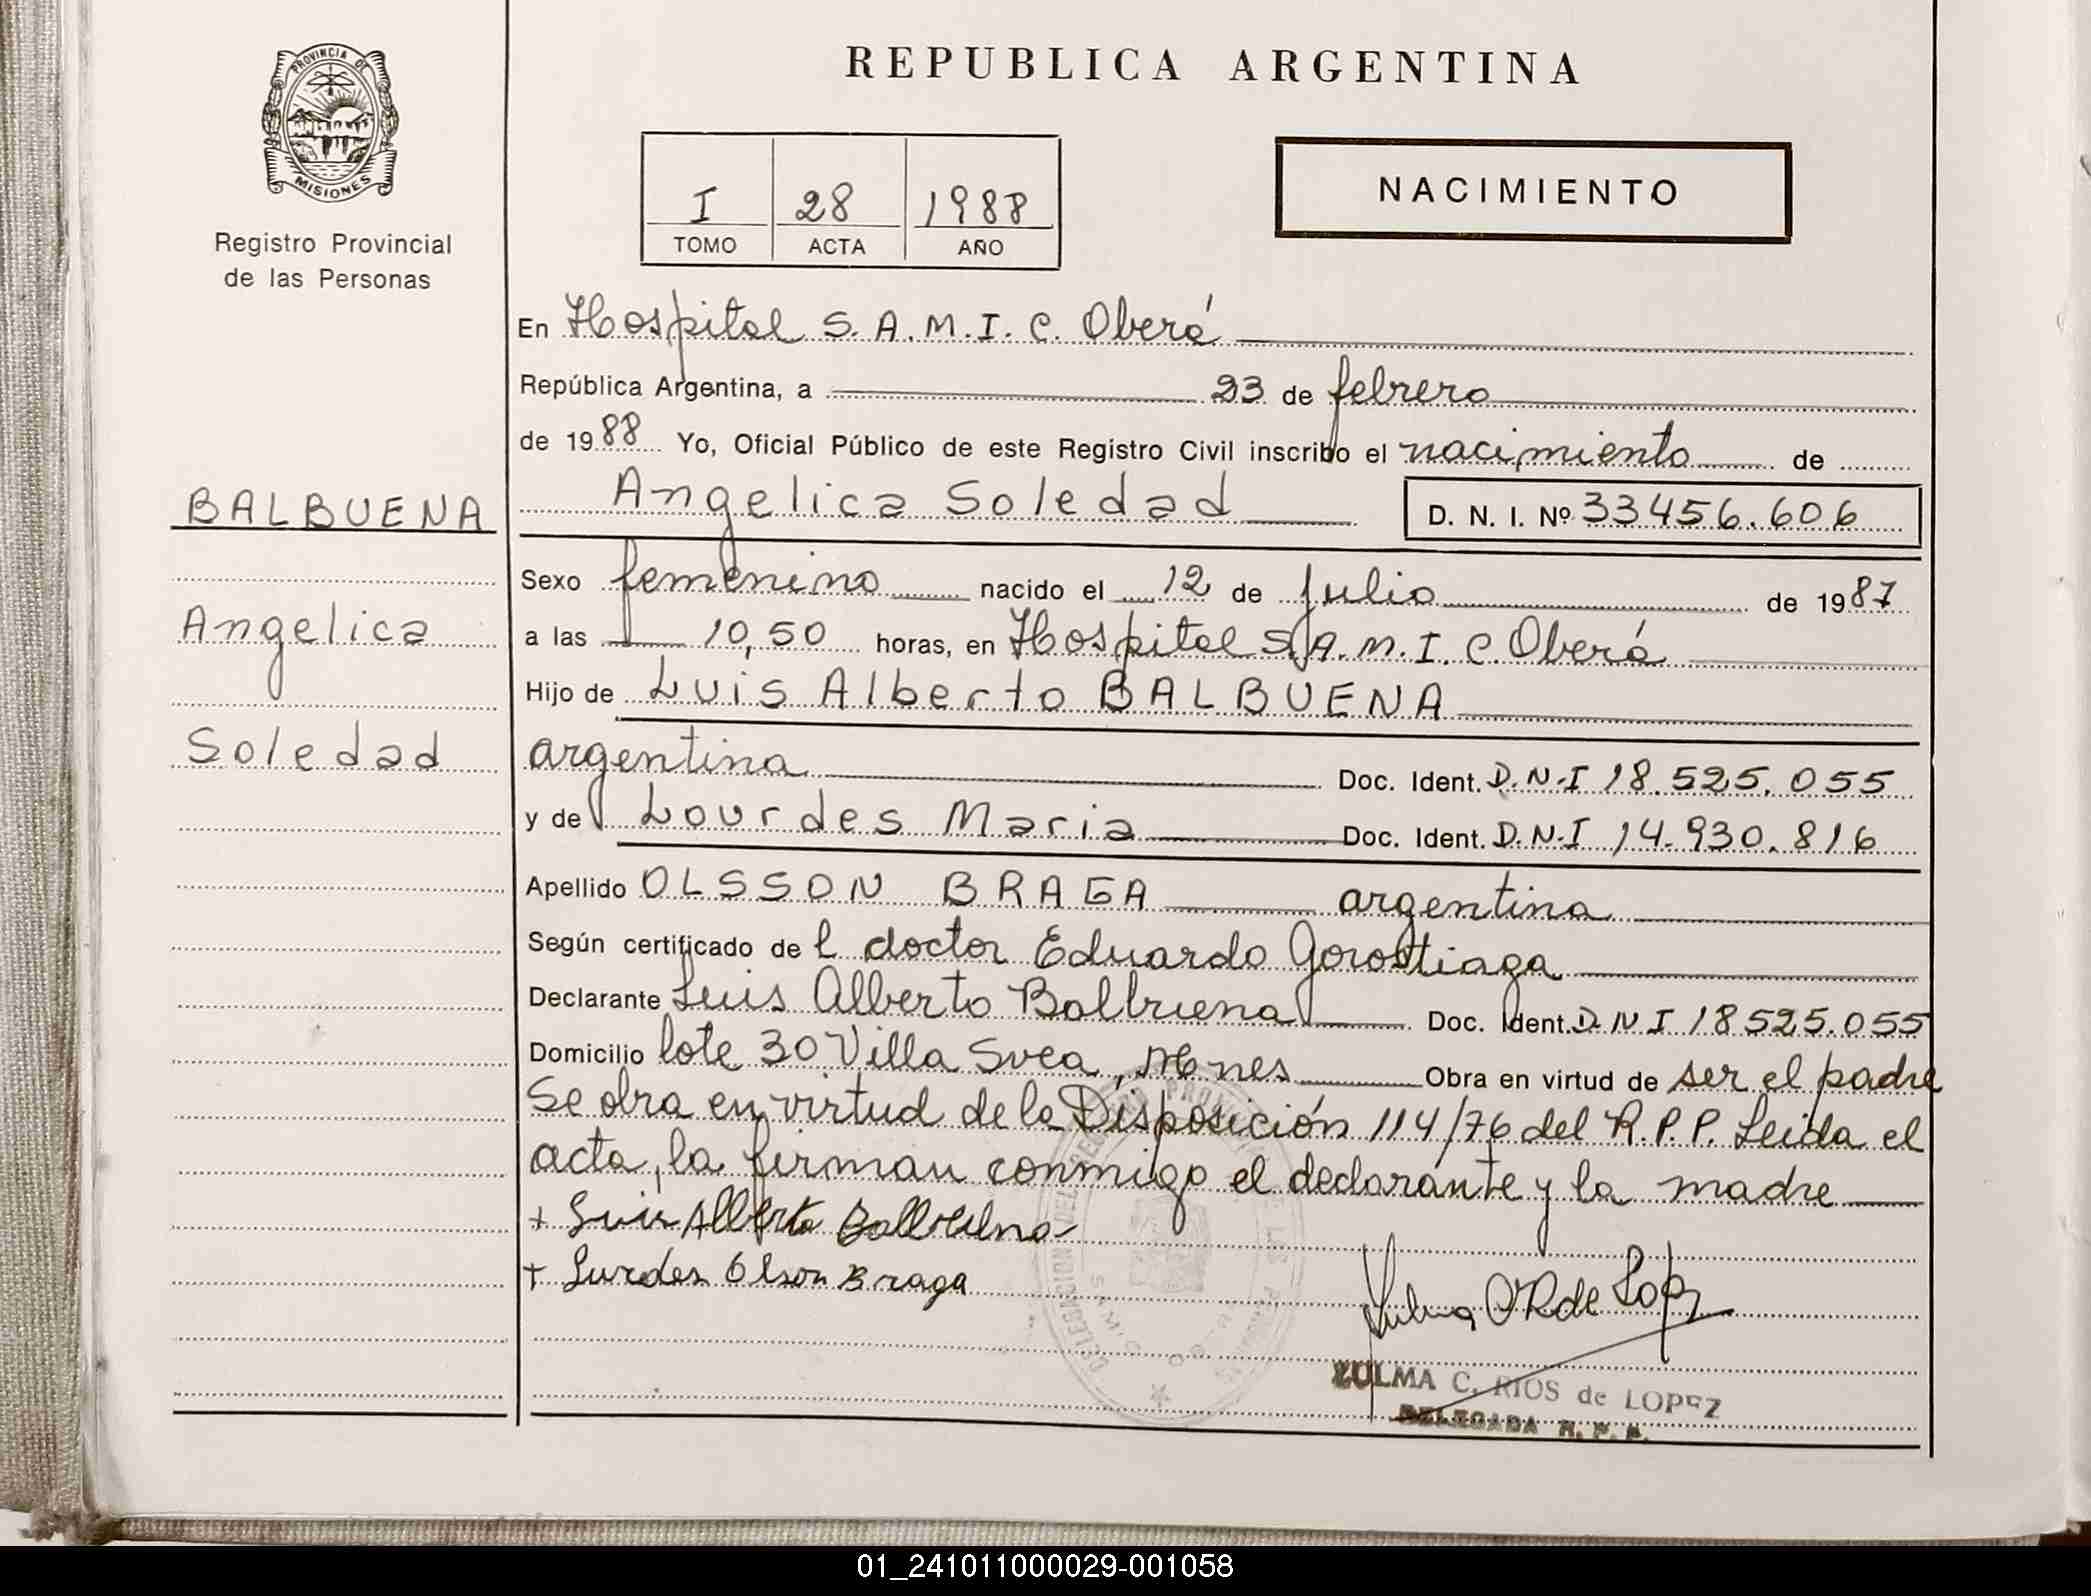 PROVINCIA DE
MISIONES
Registro Provincial
de las Personas
REPUBLICA ARGENTINA
I 28 1988
TOMO ACTA AÑO
NACIMIENTO
En Hospital S.A.M.I.C. Oberá
República Argentina, a 23 de febrero
de 1988 Yo, Oficial Público de este Registro Civil inscribo el nacimiento de
BALBUENA
Angelica Soledad D. N. I. Nº 33456.606
Sexo femenino nacido el 12 de julio de 1987
Angelica
a las 10,50 horas, en Hospital S.A.M.I.C. Oberá
Hijo de Luis Alberto BALBUENA
Soledad
argentina Doc. Ident. D.N.I 18.525.055
y de Lourdes Maria Doc. Ident. D.N.I 14.930.816
Apellido OLSSON BRAGA argentina
Según certificado de l doctor Eduardo Gorostiaga
Declarante Luis Alberto Balbuena Doc. Ident. D.N I 18525.055
Domicilio lote 30 Villa Svea, Mnes Obra en virtud de ser el padre
Se obra en virtud de la Disposición 114/76 del R.P.P. Leida el
acta, la firman conmigo el declarante y la madre
+ Luis Alberto Balbuena
+ Lurdes Olson Braga
ZULMA C. RIOS de LOPEZ
DELEGADA R. P. P.
01_241011000029-001058